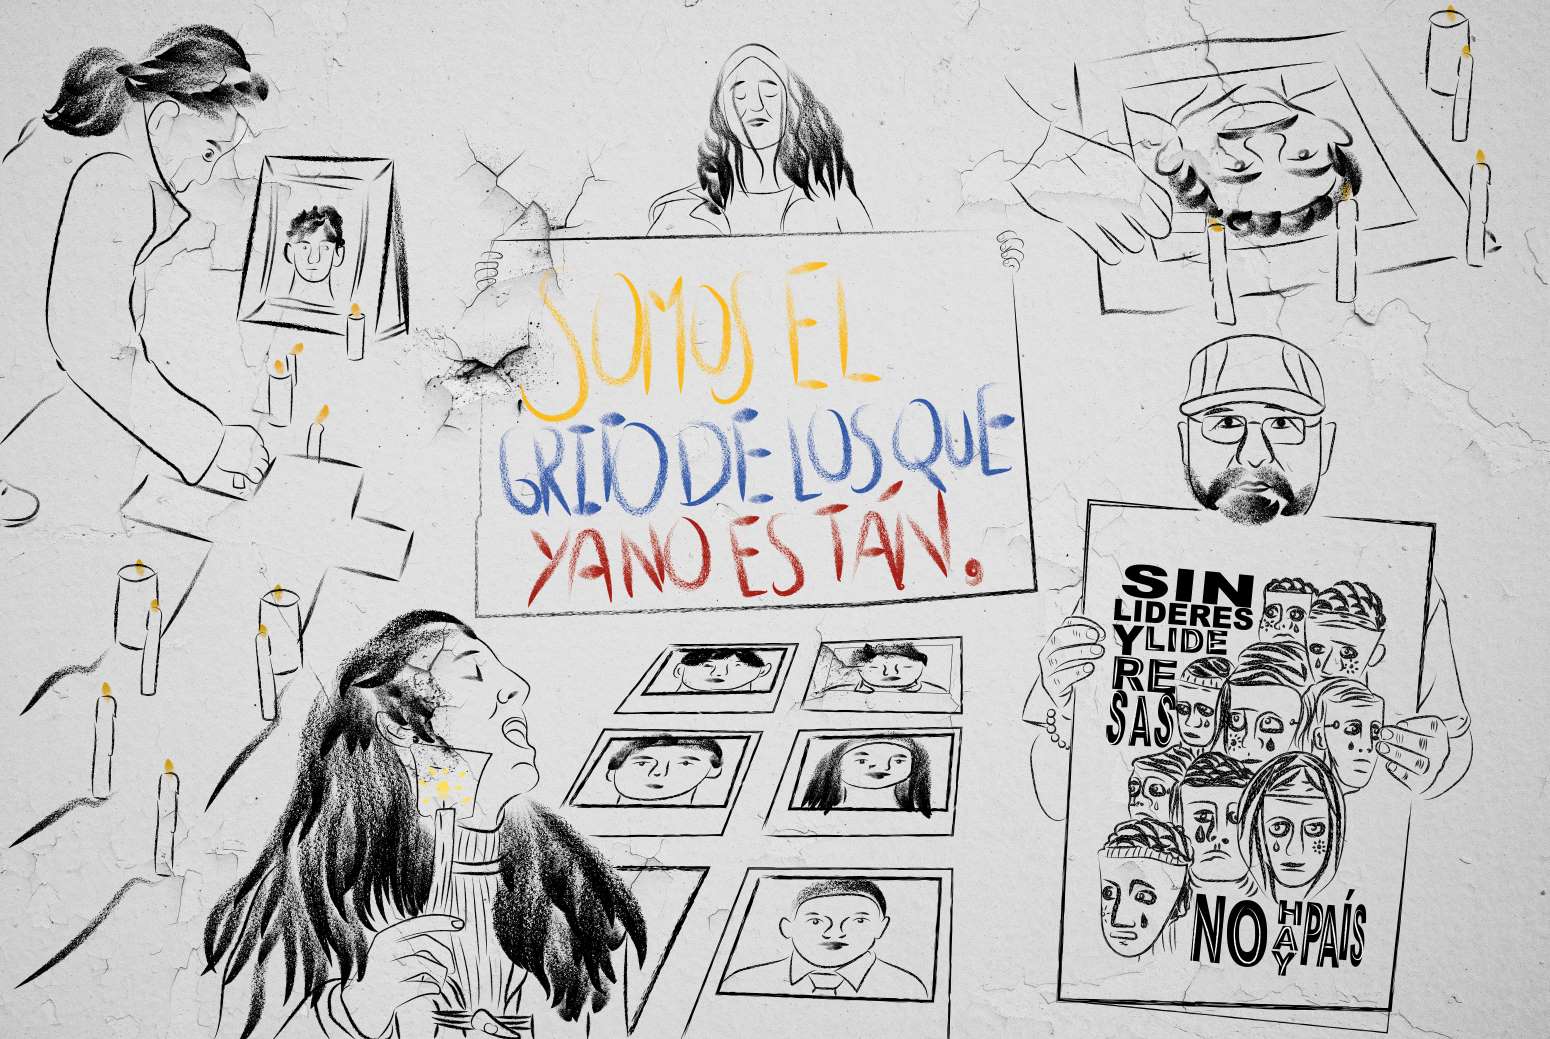 SOMOS EL
GRITO DE LOS QUE
YA NO ESTÁN,
SIN
LIDERES
Y LIDE
RE
SAS
NO HAY PAÍS